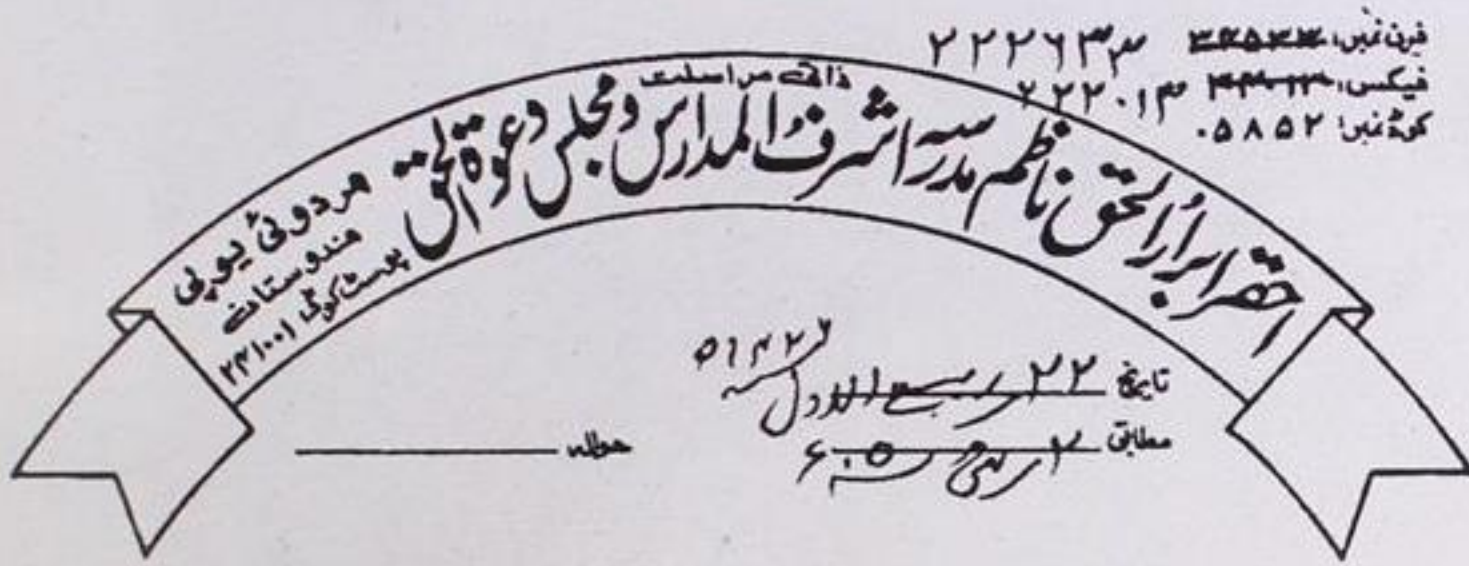 فون نمبر: ۳۲۵۳۳ ۲۲۲۶۳۳
فیکس: ۲۲۲۰۱۳
کوڈ نمبر: ۰۵۸۵۲
ذاتی مراسلت
احقر ابرار الحق ناظم مدرسہ اشرف المدارس و مجلس دعوۃ الحق
ھردوئی یوپی
ھندوستان
پوسٹ کوڈ ۲۴۱۰۰۱
تاریخ ۲۲ ربیع الاول سنہ ۱۴۲۶ھ
مطابق ۲ مئی سنہ ۰۵ء
حوالہ